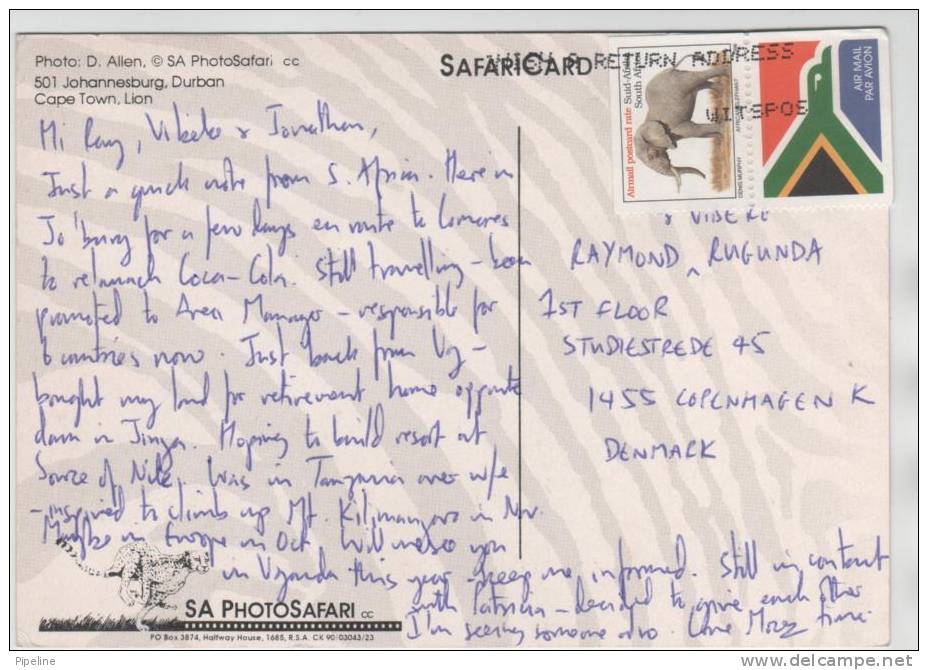 Photo: D. Allen, © SA PhotoSafari cc
501 Johannesburg, Durban
Cape Town, Lion
SAFARICARD
RETURN ADDRESS
WITSPOS
Airmail postcard rate
Suid-Afrika
South Africa
AFRICAN ELEPHANT
DENIS MURPHY
AIR MAIL
PAR AVION
Hi Ray, Vibeke & Jonathan,
Just a quick note from S. Africa. Here in
Jo'burg for a few days en route to Comores
to relaunch Coca-Cola. Still travelling - been
promoted to Area Manager - responsible for
6 countries now. Just back from Ug -
bought my land for retirement home opposite
dam in Jinja. Hoping to build resort at
Source of Nile. Was in Tanzania over w/e
- inspired to climb up Mt. Kilimanjaro in Nov.
Maybe in Europe in Oct. Will see you
in Uganda this year - keep me informed. Still in contact
with Patricia - decided to give each other time
I'm seeing someone also. Love
& VIBEKE
RAYMOND ^ RUGUNDA
1ST FLOOR
STUDIESTREDE 45
1455 COPENHAGEN K
DENMARK
SA PHOTOSAFARI cc
PO Box 3874, Halfway House, 1685, R.S.A. CK 90/03043/23
Pipeline
delcampe.net